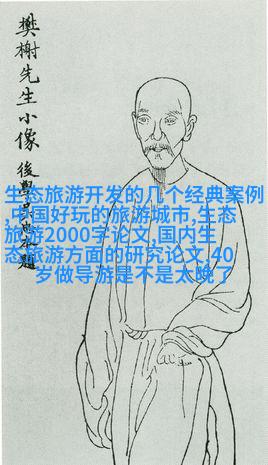 樊榭先生小像
後學
題
生态旅游开发的几个经典案例
,中国好玩的旅游城市,生态
旅游2000字论文,国内生
态旅游方面的研究论文,40
岁做导游是不是太晚了